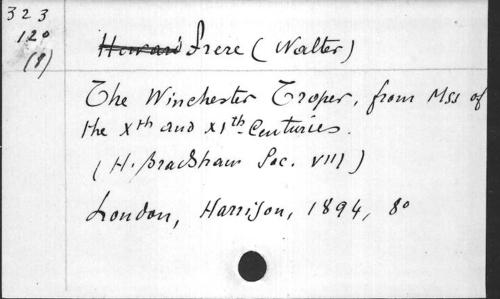 323
120
(1)
Howard Frere (Walter)
The Winchester Troper, from Mss of
the Xth and XIth Centuries.
(H. Bradshaw Soc. VIII)
London, Harrison, 1894, 8o